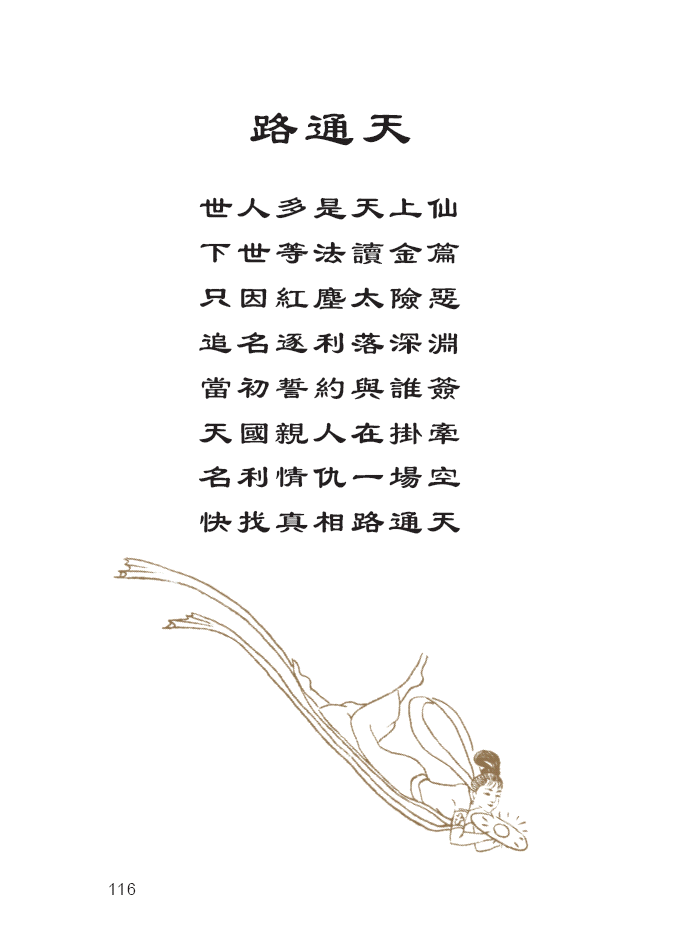 路通天
世人多是天上仙
下世等法讀金篇
只因紅塵太險惡
追名逐利落深淵
當初誓約與誰簽
天國親人在掛牽
名利情仇一場空
快找真相路通天
116